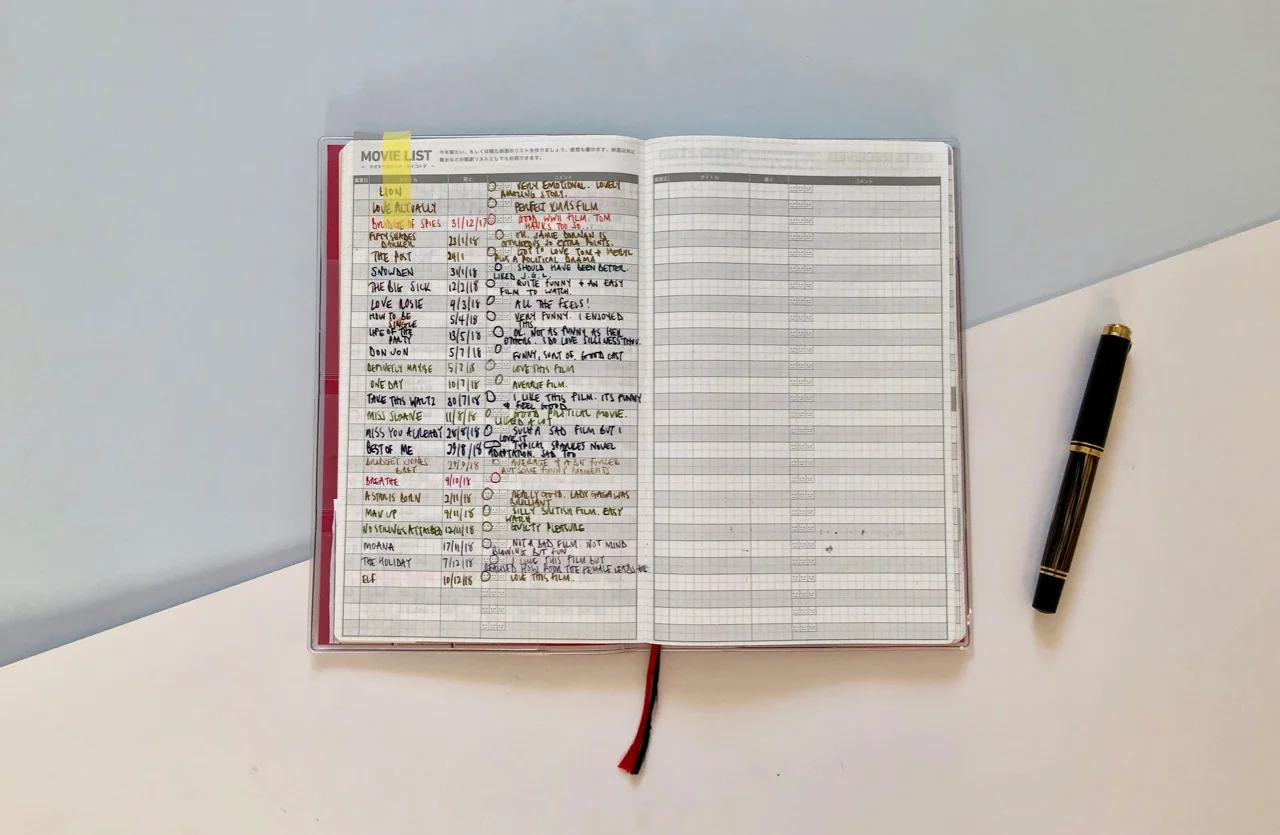 MOVIE LIST
LION VERY EMOTIONAL. LOVELY
AMAZING STORY.
LOVE ACTUALLY PERFECT XMAS FILM
BRIDGE OF SPIES 31/12/17 GOOD WWII FILM. TOM
HANKS TOO SO...
FIFTY SHADES
DARKER 23/1/18 OK. JAMIE DORNAN IS
SO EXTRA POINTS.
THE POST 24/1 GOT TO LOVE TOM + MERYL
PLUS A POLITICAL DRAMA
SNOWDEN 31/1/18 SHOULD HAVE BEEN BETTER.
LIKED J.G.L.
THE BIG SICK 12/2/18 QUITE FUNNY + AN EASY
FILM TO WATCH.
LOVE ROSIE 4/3/18 ALL THE FEELS!
HOW TO BE
SINGLE 5/4/18 VERY FUNNY. I ENJOYED
THIS.
LIFE OF THE
PARTY 13/5/18 OK. NOT AS FUNNY AS HER
OTHERS. I DO LOVE SILLINESS THOU.
DON JON 5/7/18 FUNNY, SORT OF. GOOD CAST
DEFINETLY MAYBE 5/7/18 LOVE THIS FILM
ONE DAY 10/7/18 AVERAGE FILM.
TAKE THIS WALTZ 30/7/18 I LIKE THIS FILM. ITS FUNNY
+ FEEL GOOD
MISS SLOANE 11/8/18 GOOD POLITICAL MOVIE.
LIKED A LOT
MISS YOU ALREADY 28/8/18 SUCH A SAD FILM BUT I
LOVE IT
BEST OF ME 29/8/18 TYPICAL SPARKES NOVEL
ADAPTATION. SAD TOO
BRIDGET JONES
BABY 29/9/18 AVERAGE + A BIT FORCED
BUT SOME FUNNY MOMENTS
BREATHE 9/10/18
A STAR IS BORN 2/11/18 REALLY GOOD. LADY GAGA WAS
BRILLIANT
MAN UP 9/11/18 SILLY BRITISH FILM. EASY
WATCH
NO STRINGS ATTACHED 12/11/18 GUILTY PLEASURE
MOANA 17/11/18 NOT A BAD FILM. NOT MIND
BLOWING BUT FUN
THE HOLIDAY 7/12/18 I LIKE THIS FILM BUT
HOW POOR THE FEMALE LEADS ARE
ELF 10/12/18 LOVE THIS FILM.
タイトル
コメント